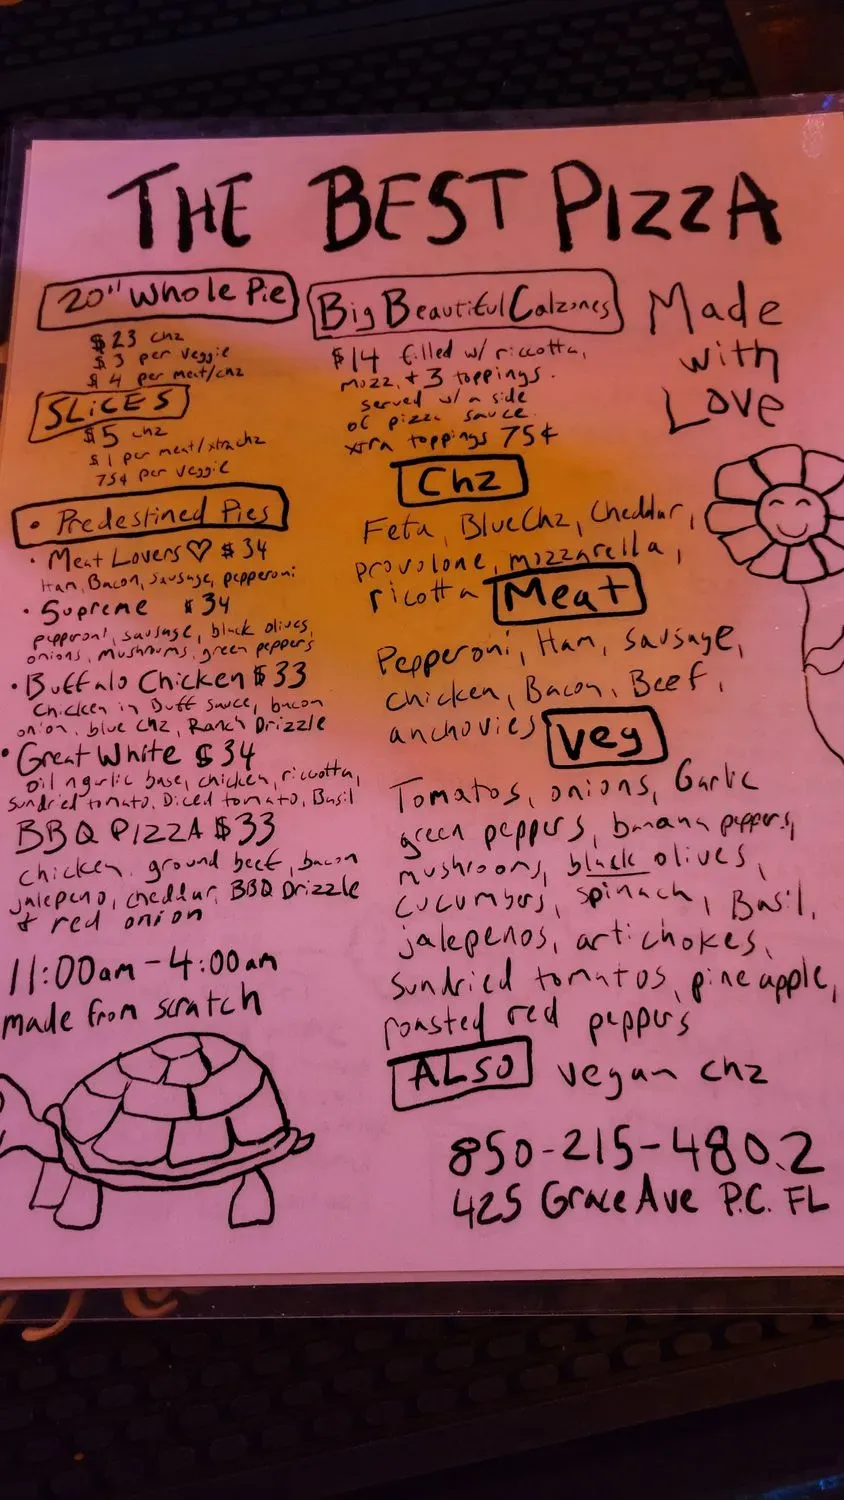 THE BEST PIZZA
20" Whole Pie
$23 chz
$3 per veggie
$4 per meat/chz
SLiCES
$5 chz
$1 per meat/xtra chz
75¢ per veggie
• Predestined Pies
• Meat Lovers ♡ $34
Ham, Bacon, sausage, pepperoni
• Supreme $34
pepperoni, sausage, black olives,
onions, mushrooms, green peppers
• Buffalo Chicken $33
Chicken in Buff sauce, bacon
onion, blue chz, Ranch Drizzle
• Great White $34
oil n garlic base, chicken, riccotta,
sundried tomato, Diced tomato, Basil
BBQ PIZZA $33
chicken, ground beef, bacon
jalepeno, cheddar, BBQ Drizzle
+ red onion
11:00am - 4:00am
made from scratch
Big Beautiful Calzones
$14 filled w/ riccotta,
mozz, + 3 toppings.
served w/ a side
of pizza sauce.
xtra toppings 75¢
Made
with
Love
Chz
Feta, Blue Chz, Cheddar,
provolone, mozzarella,
ricotta
Meat
Pepperoni, Ham, sausage,
chicken, Bacon, Beef,
anchovies
Veg
Tomatos, onions, Garlic
green peppers, banana peppers,
mushrooms, black olives,
cucumbers, spinach, Basil,
jalepenos, artichokes,
sundried tomatos, pineapple,
roasted red peppers
ALSO vegan chz
850-215-4802
425 Grace Ave P.C. FL